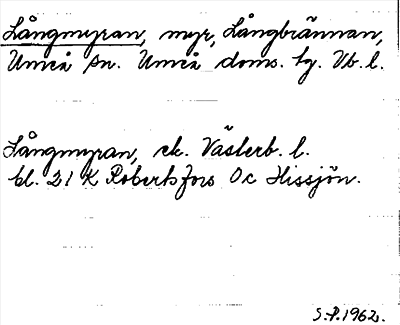 Långmyran, myr, Långbrännan,
Umeå sn. Umeå doms. tg. Vb. l.
Långmyran, ek. Västerb. l.
bl. 21 K Robertsfors Oc Hissjön.
S.P. 1962.